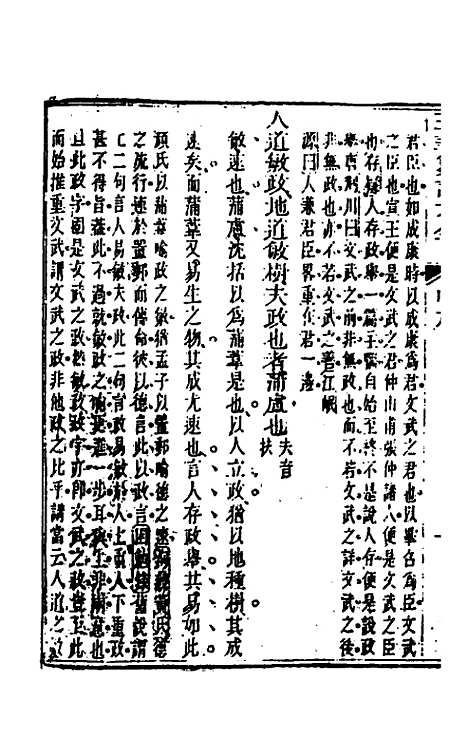 君臣也如成康時以成康爲君文武之君也以畢召爲臣文武
之臣也宣王便是文武之君仲山甫張仲諸人便是文武之臣
也存疑人存政舉一篇主張自始至終不是說人存便是說政
舉吳因川曰文武之前非無政也而不若文武之詳文武之後
非無政也亦不若文武之善江岷
源曰人兼君臣畧重在君一邊
人道敏政地道敏樹夫政也者蒲盧也夫音扶
敏速也蒲盧沈括以爲蒲葦是也以人立政猶以地種樹其成
速矣而蒲葦又易生之物其成尤速也言人存政舉其易如此
項氏以蒲葦喻政之敏猶孟子以置郵喻德之速
之流行速於置郵而傳命彼以德言此以政言
上二句言人易敏夫政此二句言政易敏於人上重人下重政
甚不得旨蓋此不過就敏政之喻更進一步耳
且此政字固是文武之政然敏政政字亦即文武之政豈至此
而始推重文武謂文武之政非他政之比乎講當云人道之